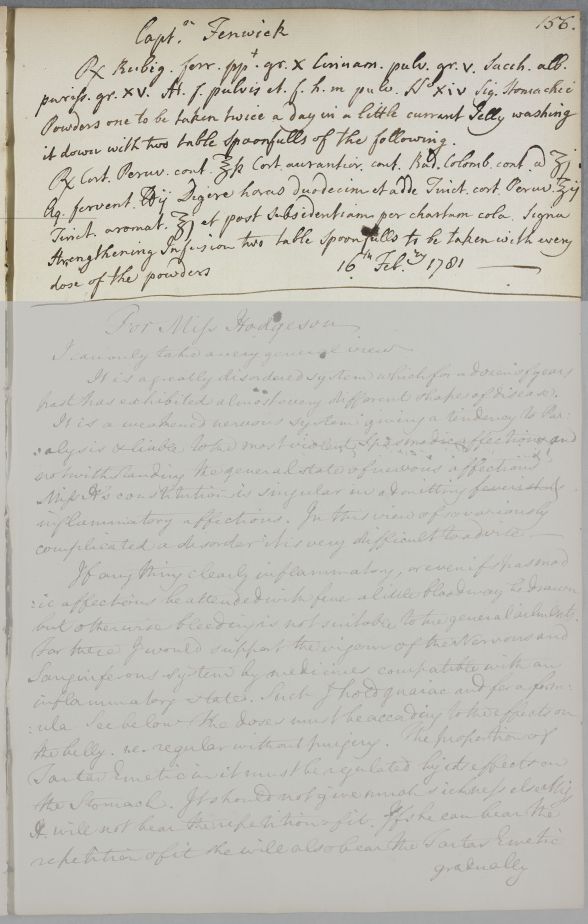 156.
Capt.n Fenwick
Rx Rubig. ferr. ppt. gr. X Cinnam. pulv. gr. V. Sacch. alb.
puriss. gr. XV. M. f. pulvis et f. h. m pulv. No XIV Sig. Stomachic
Powders one to be taken twice a day in a little currant Jelly washing
it down with two table spoonfulls of the following.
Rx Cort. Peruv. cont. ℥ß Cort. aurantior. cont. Rad. Colomb. cont. a ʒj
Aq. fervent. ℔ij Digere horas duodecim et adde Tinct. cort. Peruv. ℥ij
Tinct. aromat. ℥j et post subsidentiam per chartam cola. Signa
Strengthening Infusion two table spoonfulls to be taken with every
dose of the powders
16th Feb.ry 1781
For Miss Hodgeson
I can only take a very general view
It is a greatly disordered system which for a dozen of years
past has exhibited almost every different shapes of disease.
It is a weakened nervous system giving a tendency to Par:
:alysis & liable to the most violent spasmodic affections and
notwithstanding the general state of nervous affections
Miss H's constitution is singular in admitting
inflammatory affections. In this view of so variously
complicated a disorder it is very difficult to advise
If any thing clearly inflammatory, or even if spasmod
:ic affections be attended with fever a little blood may be drawn
but otherwise bleeding is not suitable to the general ailments.
For these I would support the vigour of the Nervous and
Sanguiferous system by medicines compatible with an
inflammatory state. Such I hold guaiac and for a form:
:ula see below. The doses must be according to the effects on
the belly. i.e. regular without purging. The proportion of
Tartar Emetic in it must be regulated by its effects on
the Stomach. It should not give much sickness else Miss
H. will not bear the repetition of it. If she can bear the
repetition of it she will also bear the Tartar Emetic
gradually